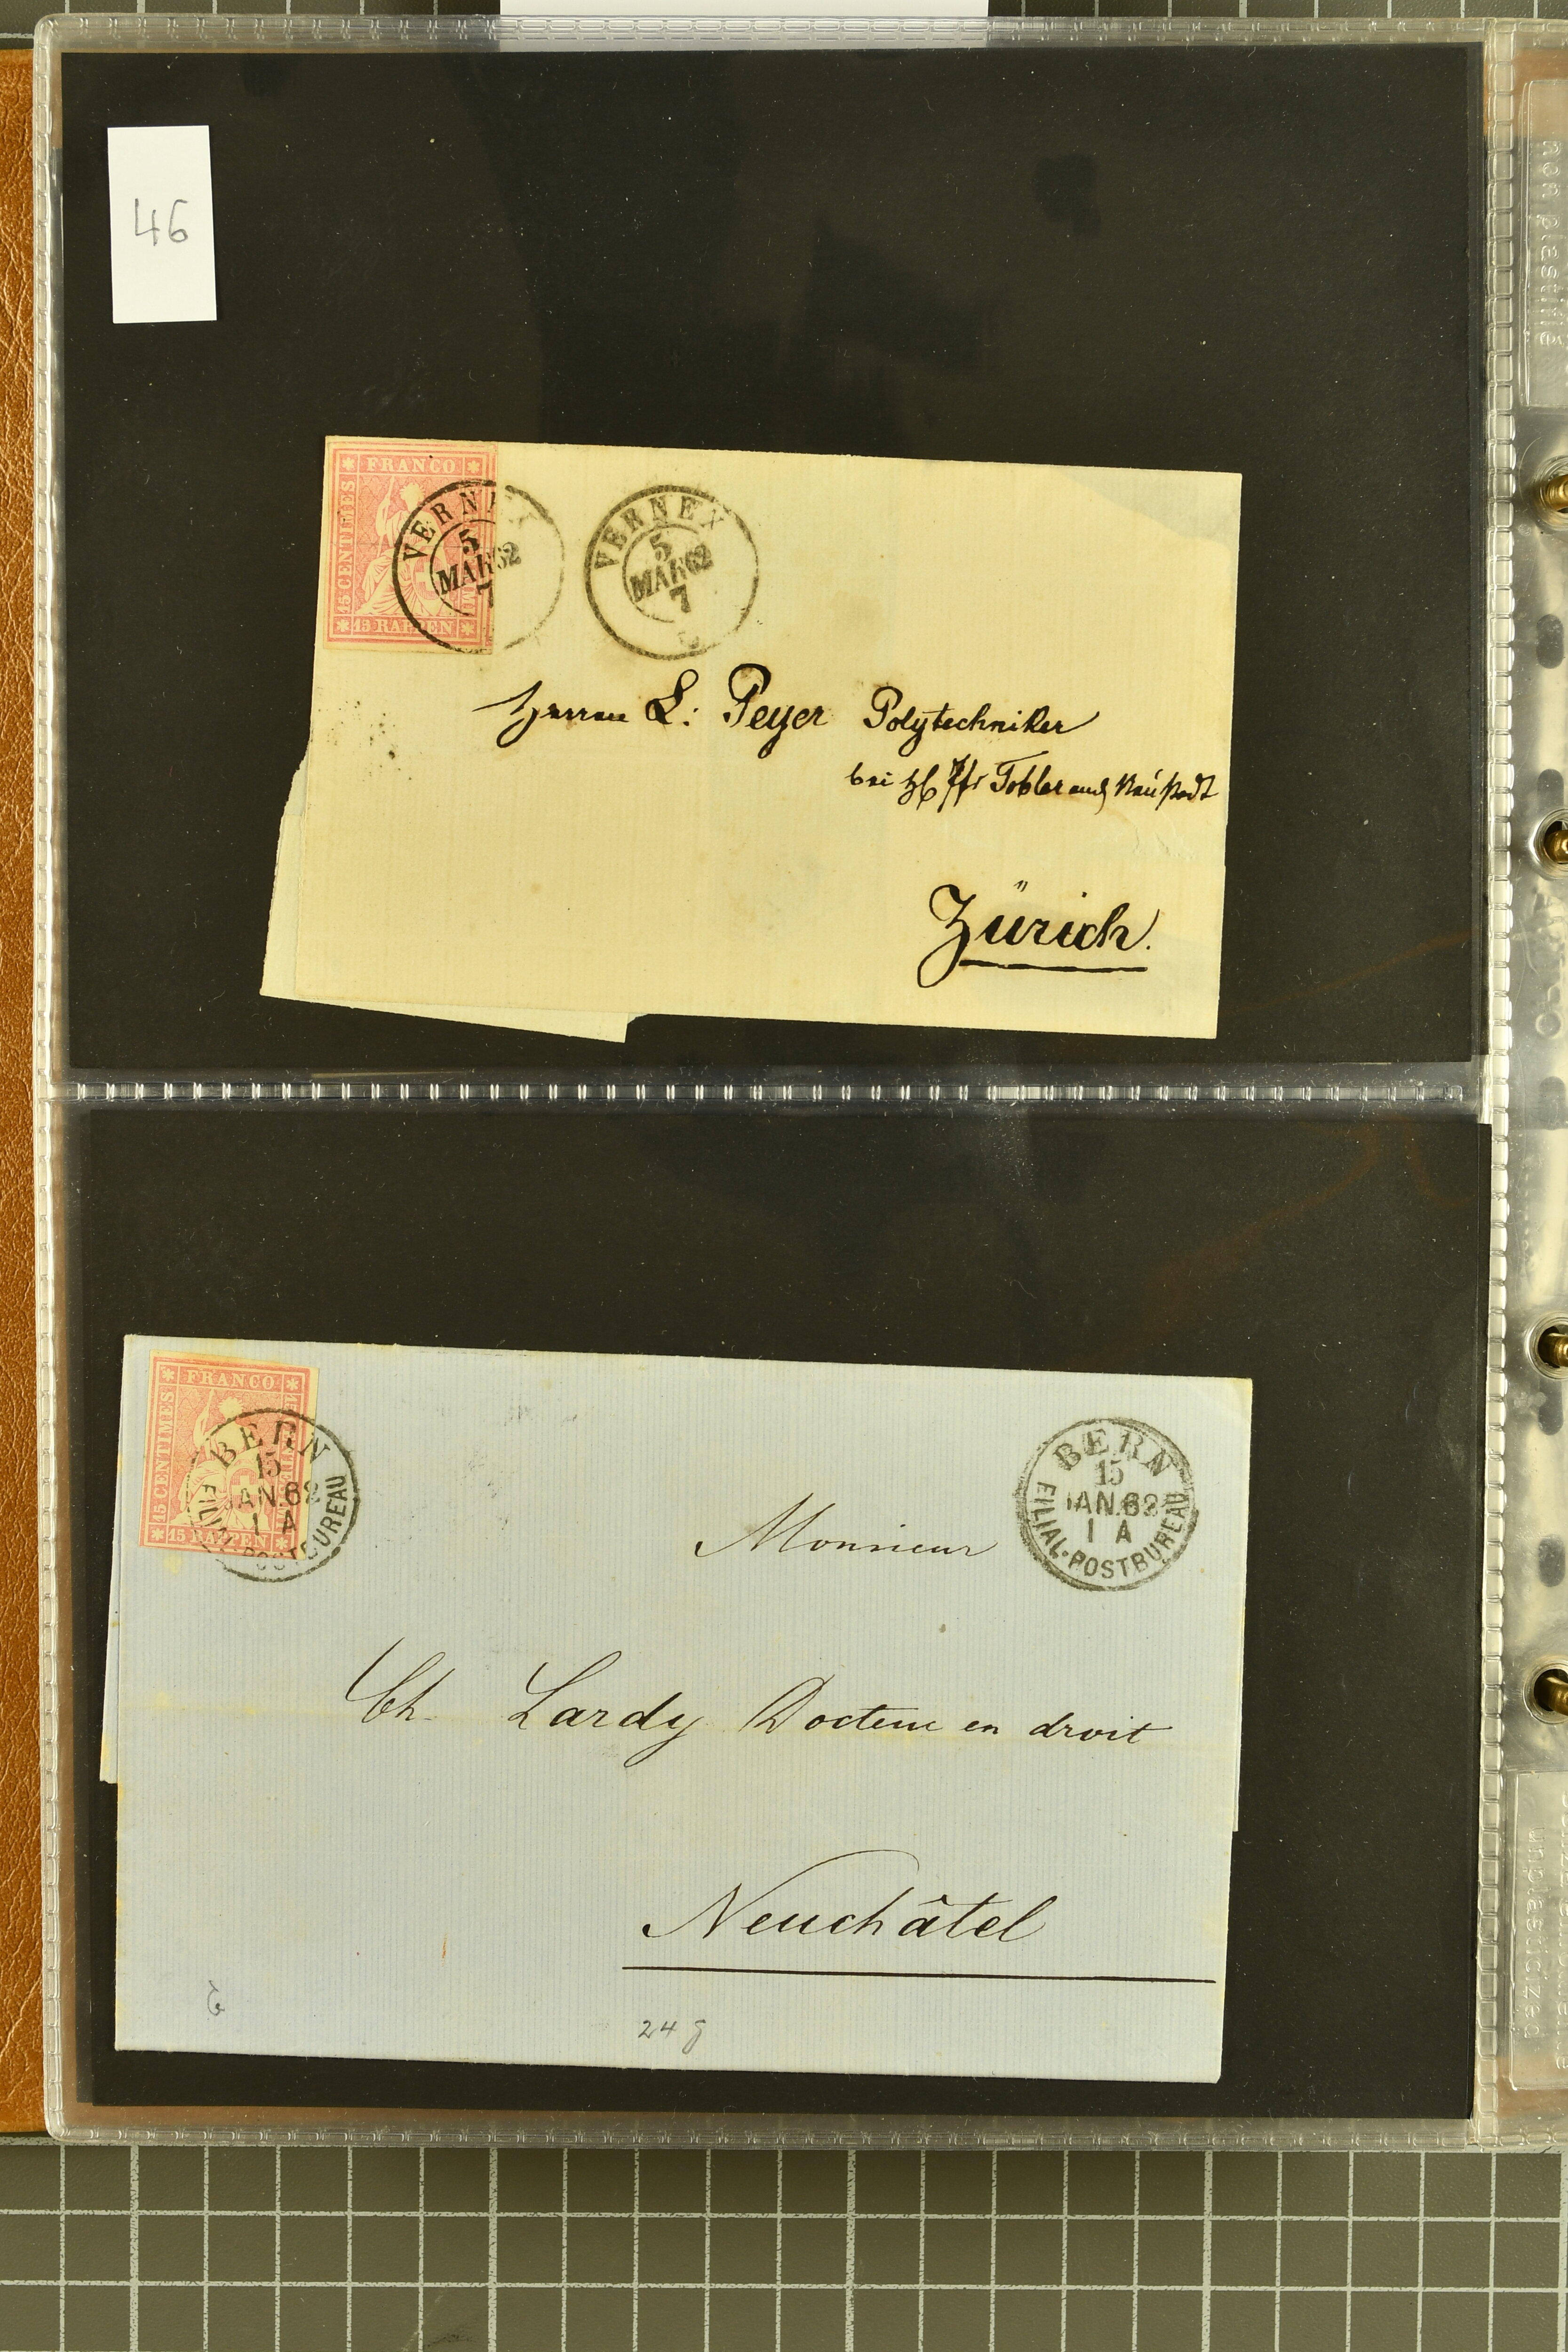 46
FRANCO
15 CENTIMES
15 RAPPEN
VERNEX
5
MAR 62
7
VERNEX
5
MAR 62
7
Herrn L: Peyer Polytechniker
bei Tobler Neustadt
Zürich.
FRANCO
15 CENTIMES
15 RAPPEN
BERN
15
JAN. 62
1 A
FILIAL-POSTBUREAU
BERN
15
JAN. 62
1 A
FILIAL-POSTBUREAU
Monsieur
Ch. Lardy Docteur en droit
Neuchâtel
24 g
non plastifié
unplasticized